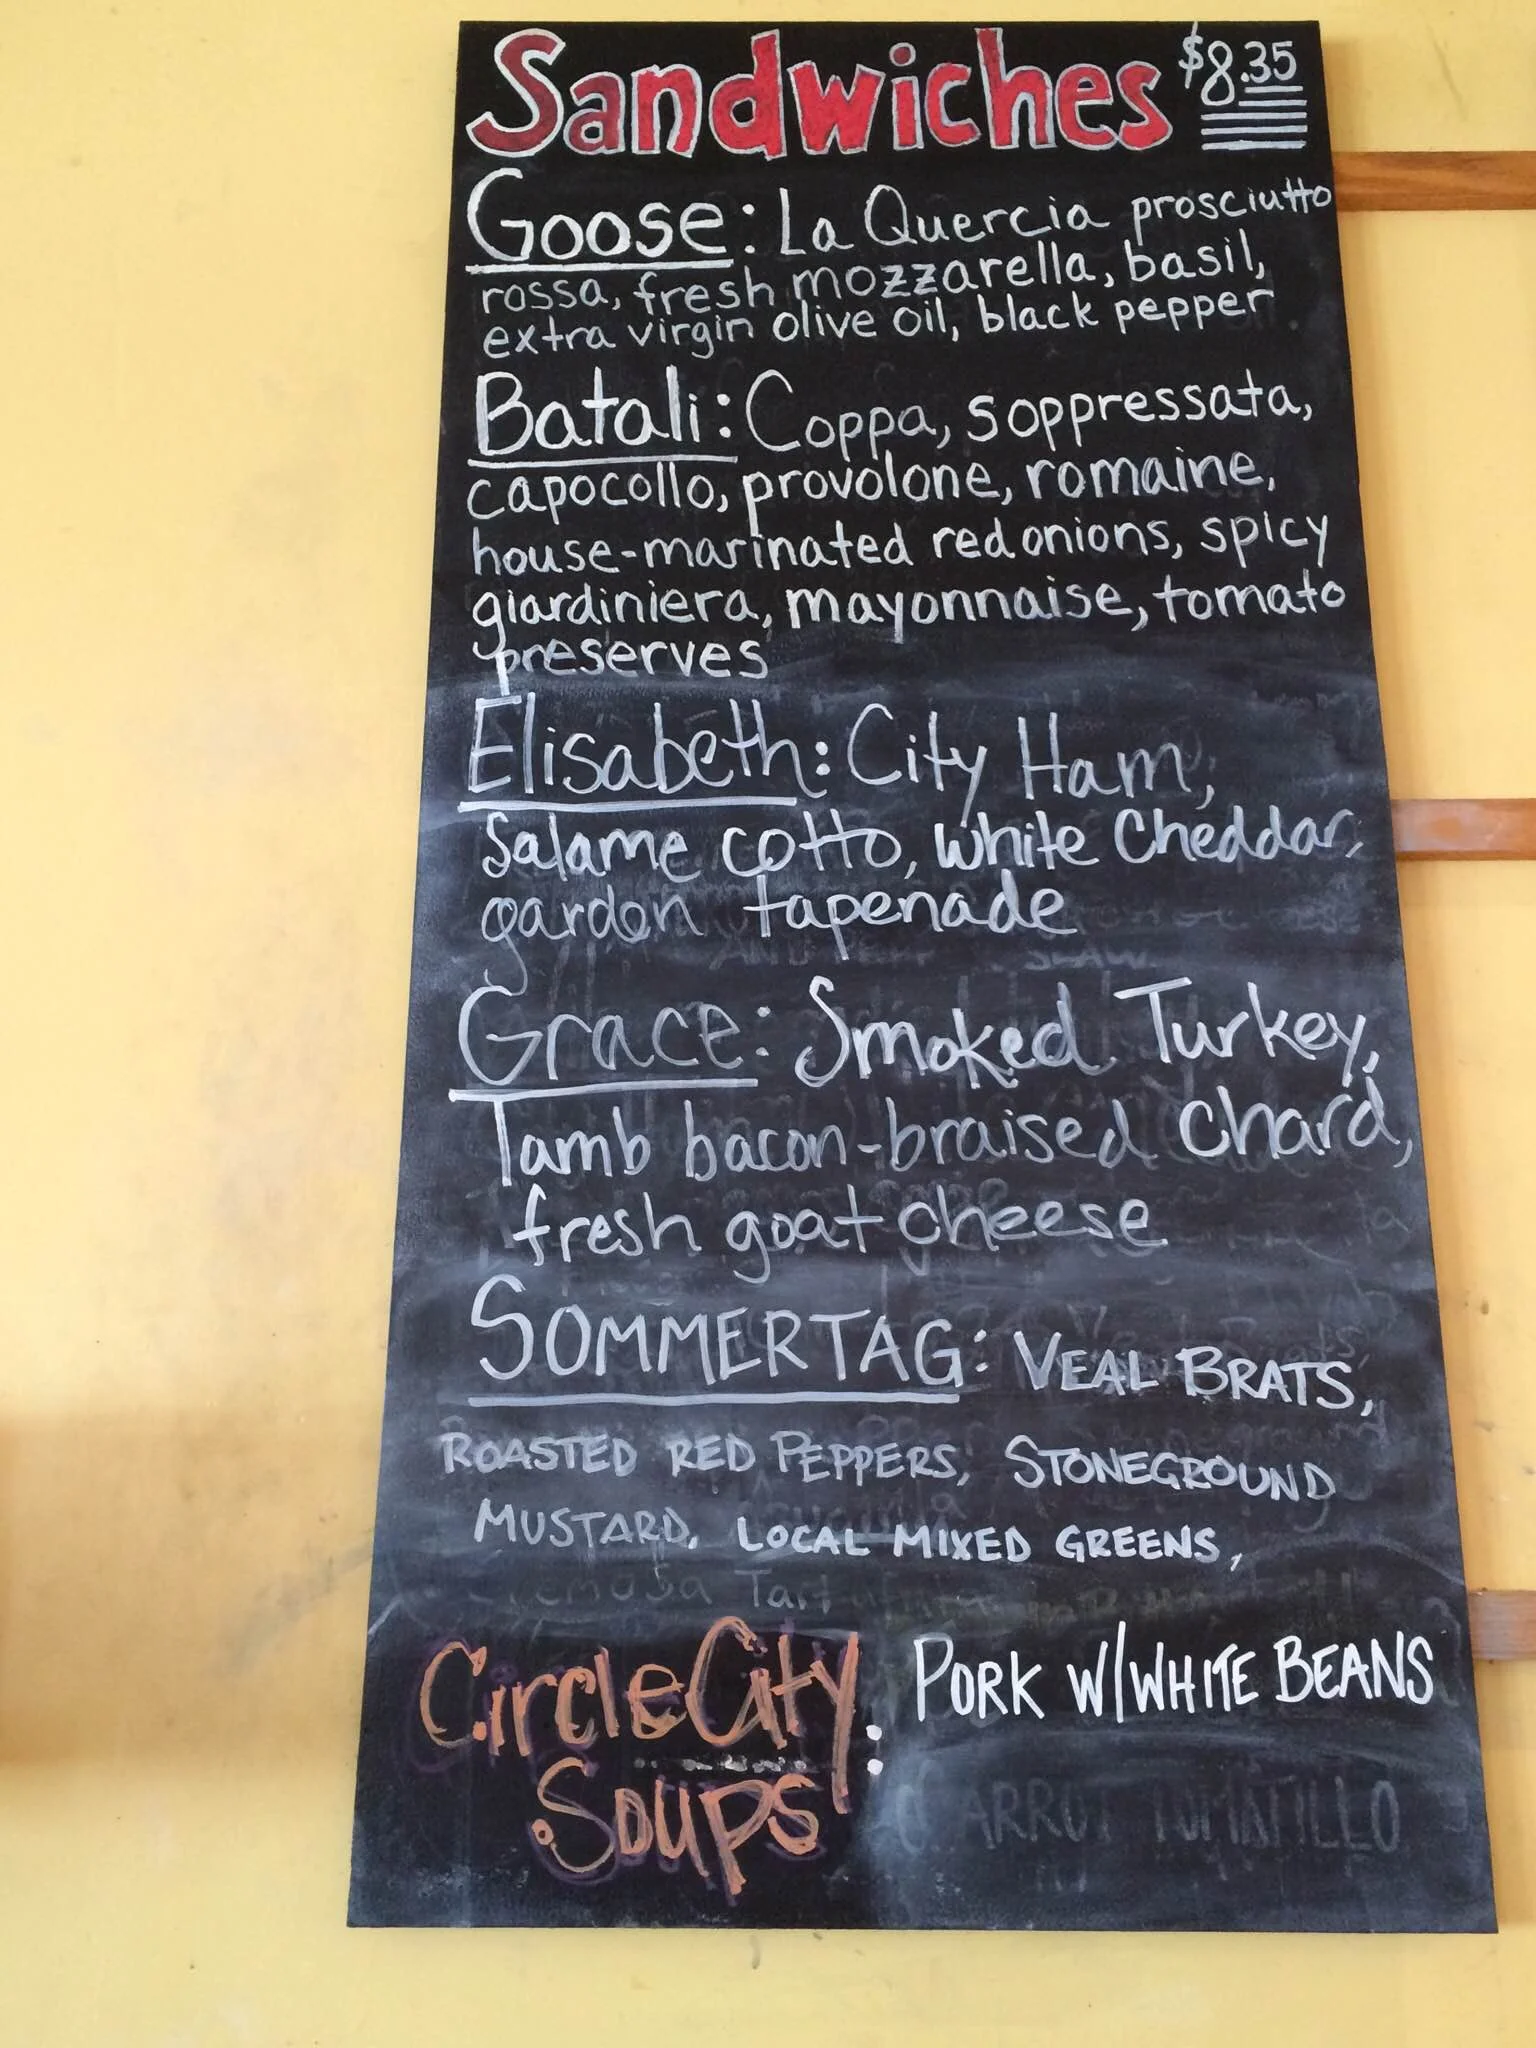 Sandwiches $8.35
Goose: La Quercia prosciutto
rossa, fresh mozzarella, basil,
extra virgin olive oil, black pepper
Batali: Coppa, soppressata,
capocollo, provolone, romaine,
house-marinated red onions, spicy
giardiniera, mayonnaise, tomato
preserves
Elisabeth: City Ham,
Salame cotto, white Cheddar,
garden tapenade
Grace: Smoked Turkey,
Iamb bacon-braised chard,
fresh goat cheese
SOMMERTAG: VEAL BRATS,
ROASTED RED PEPPERS, STONEGROUND
MUSTARD, LOCAL MIXED GREENS,
Circle City : PORK W/WHITE BEANS
Soups